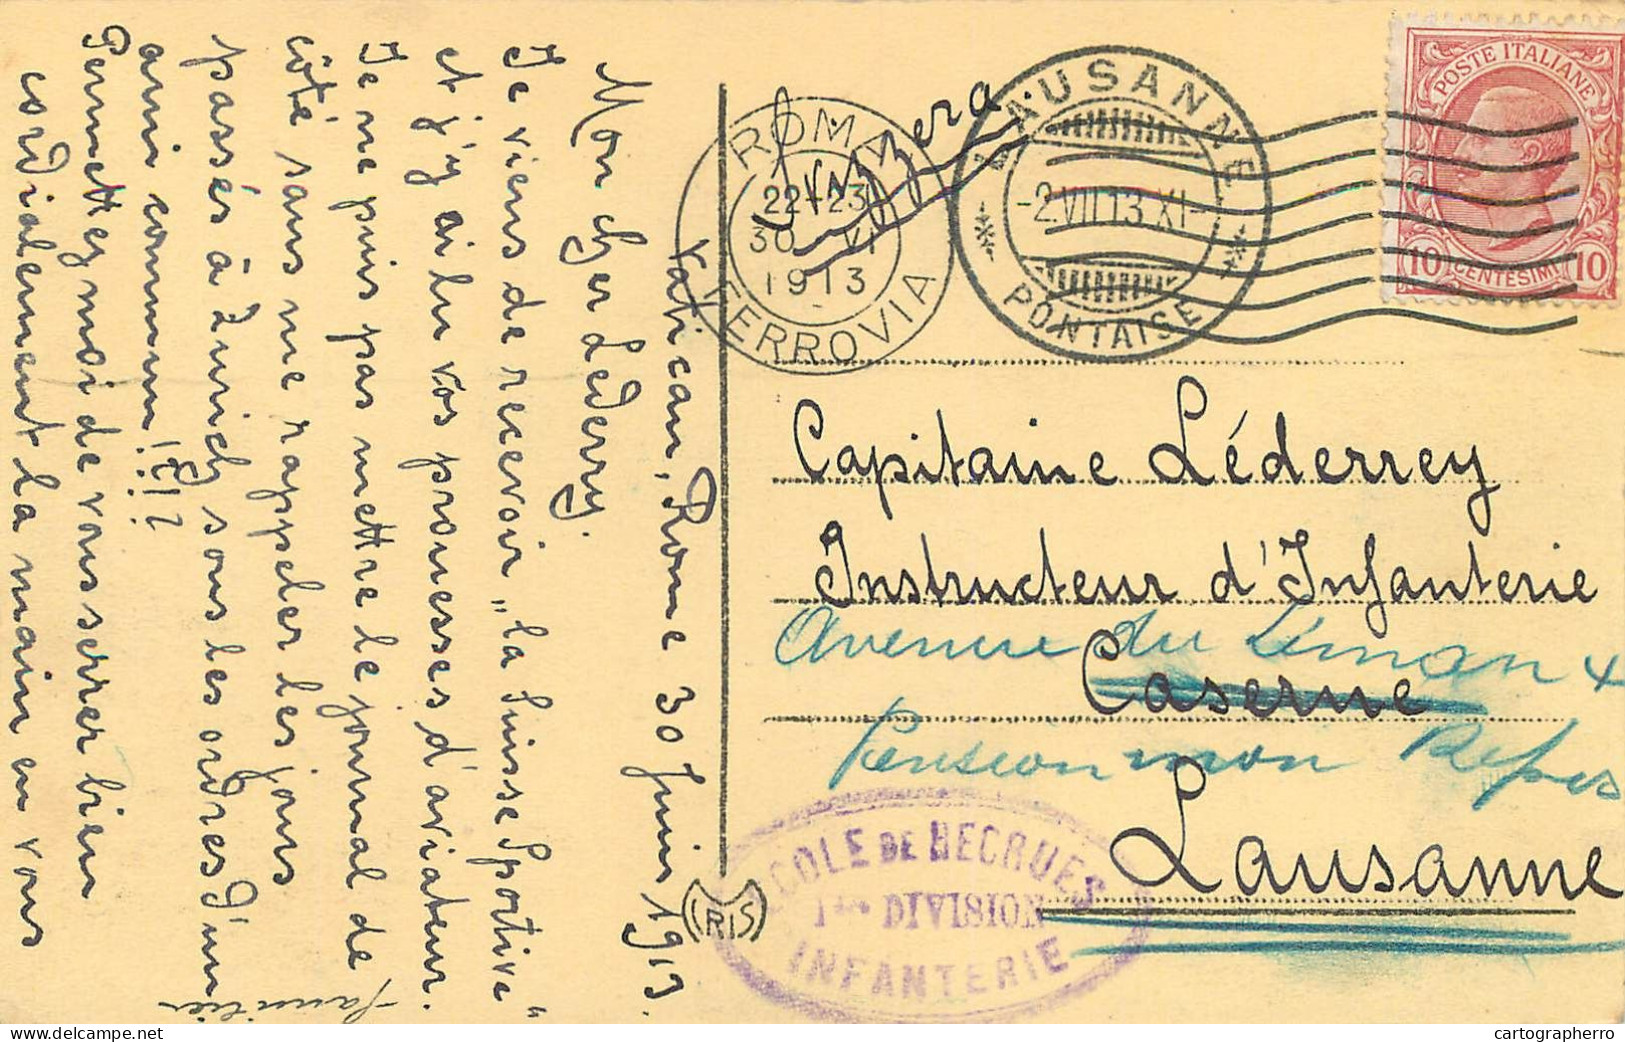 Vatican, Rome 30 Juin 1913.
Mon cher Léderrey.
Je viens de recevoir „la Suisse Sportive"
et j'y ai lu vos prouesses d'aviateur.
Je ne puis pas mettre le journal de
côté sans me rappeler les jours
passés à Zurich sous les ordres d'un
ami commun!?!?
Permettez moi de vous serrer bien
cordialement la main en vous
ROMA
22-23
30 VI
1913
FERROVIA
Svizzera
LAUSANNE
-2.VII.13.XI-
PONTAISE
POSTE ITALIANE
10 CENTESIMI 10
Capitaine Léderrey
Instructeur d'Infanterie
Avenue du Léman 4
Caserne
Pension mon Repos
Lausanne
ECOLE DE RECRUES
1ère DIVISION
INFANTERIE
IRIS
www.delcampe.net
cartographerro